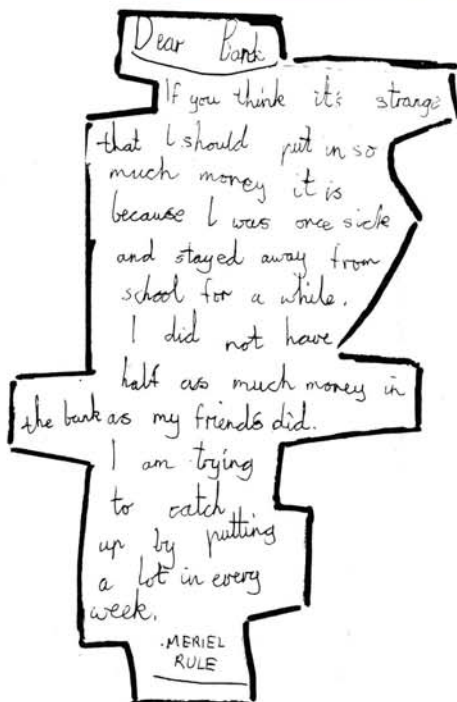 Dear Bank
If you think it's strange
that I should put in so
much money it is
because I was once sick
and stayed away from
school for a while.
I did not have
half as much money in
the bank as my friends did.
I am trying
to catch
up by putting
a lot in every
week.
MERIEL
RULE